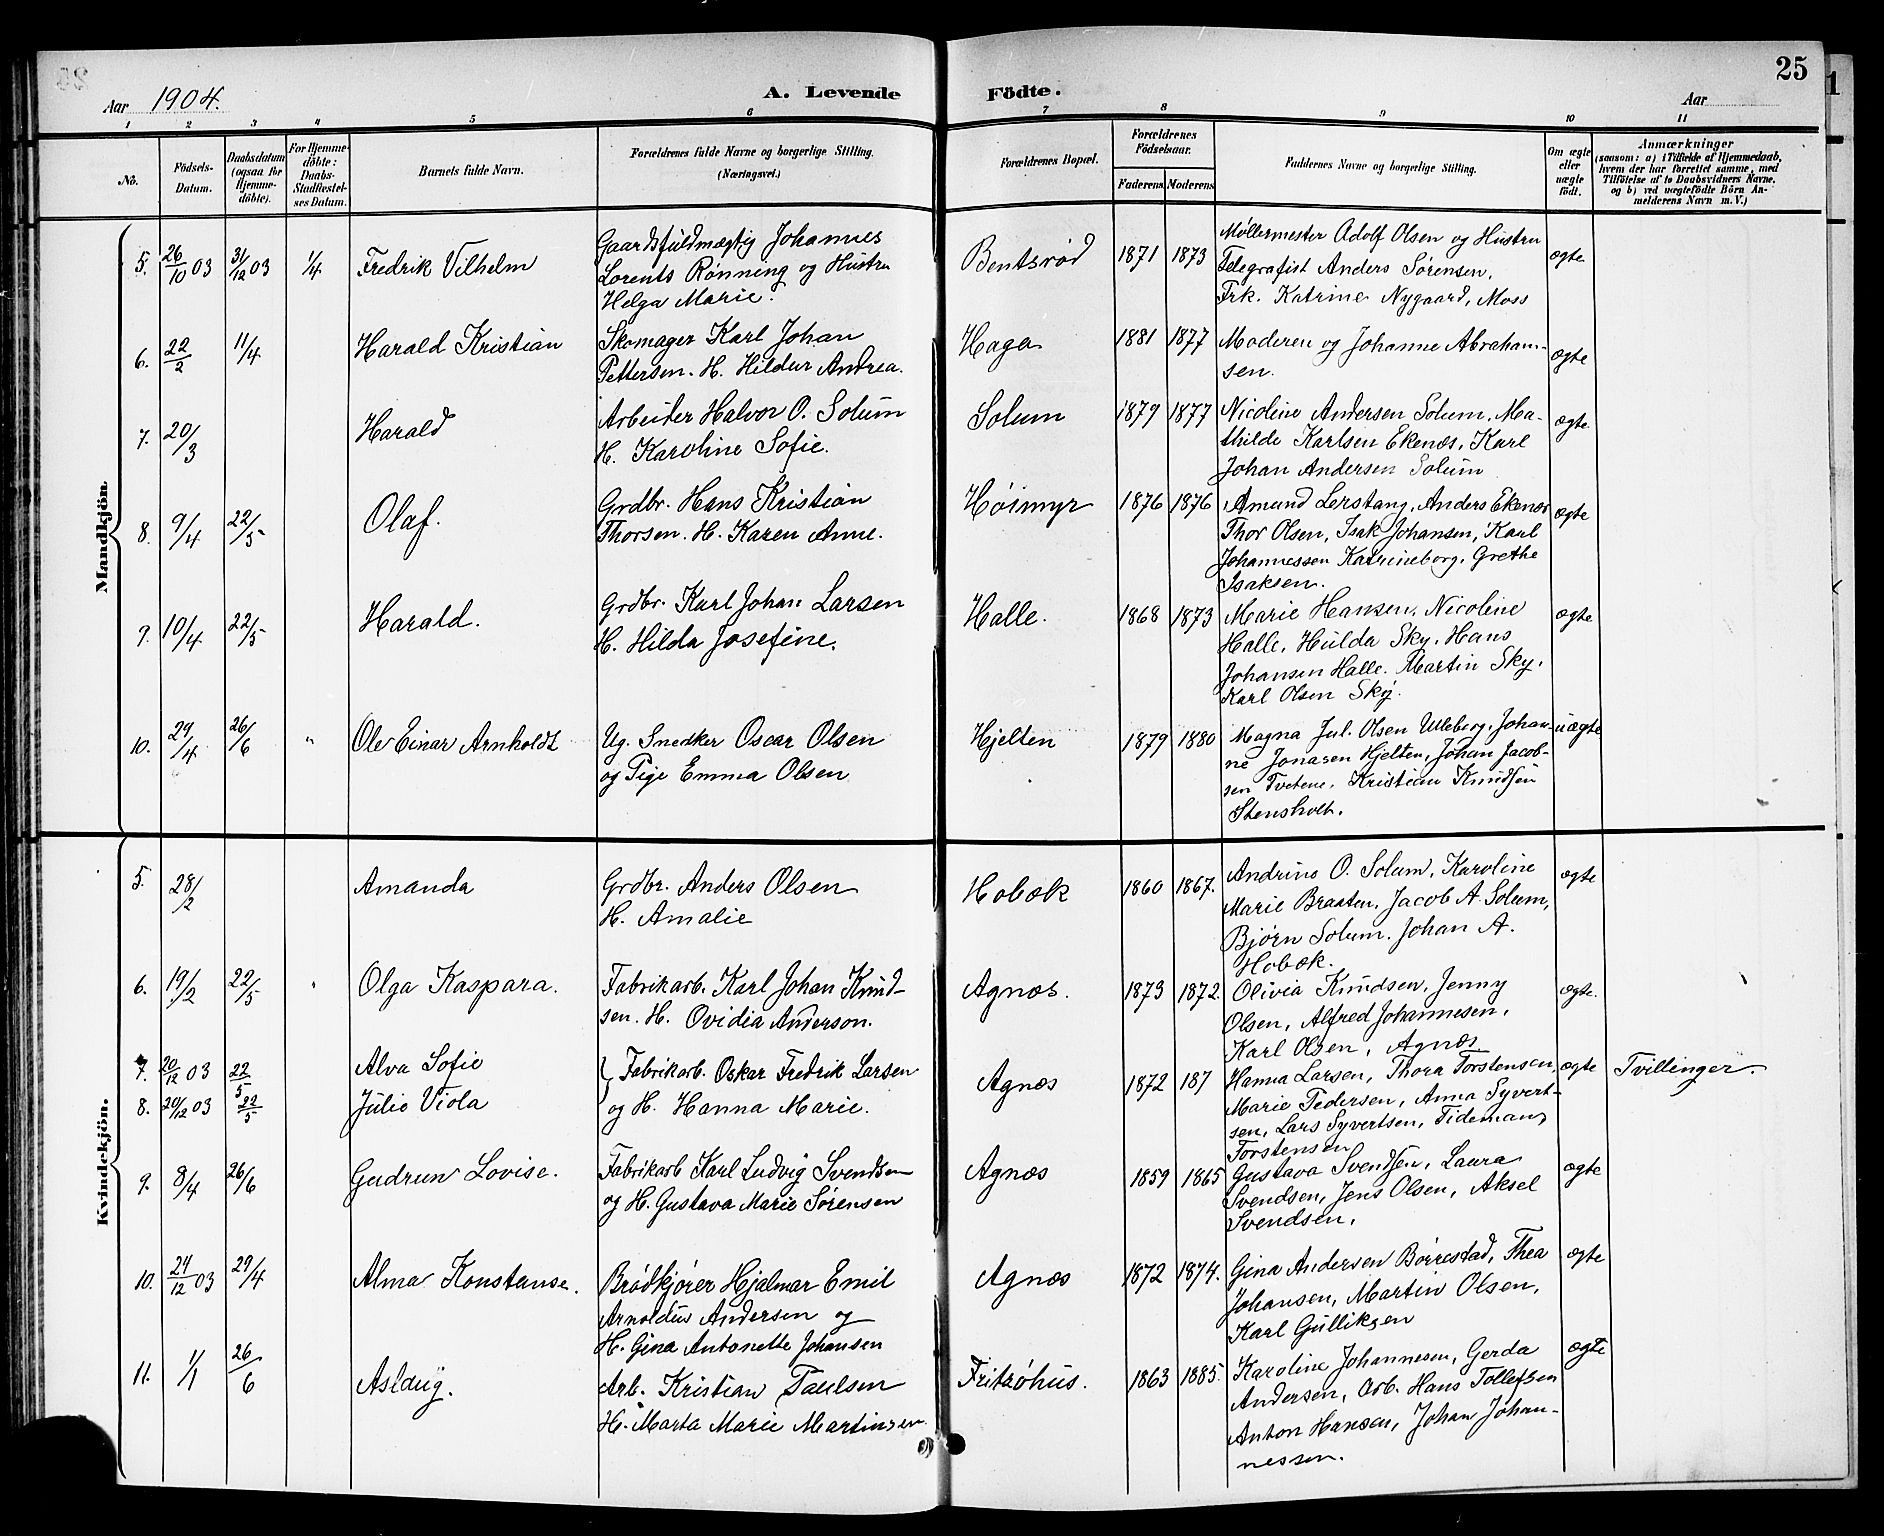 25
Aar 1904.
A. Levende Födte.
Aar
1 2 3 4 5 6 7 8 9 10 11
No.
Födsels-Datum.
Daabsdatum (ogsaa for Hjemme-döbte).
For Hjemme-döbte: Daabs-Stadfæstel-ses Datum.
Barnets fulde Navn.
Forældrenes fulde Navne og borgerlige Stilling.
(Næringsvei.)
Forældrenes Bopæl.
Forældrenes Födselsaar.
Faderens Moderens
Faddernes Navne og borgerlige Stilling.
Om ægte eller uægte födt.
Anmærkninger
(saasom: a) i Tilfælde af Hjemmedaab,
hvem der har forrettet samme, med
Tilföielse af to Daabsvidners Navne,
og b) ved uægtefödte Börn An-
melderens Navn m. V.)
Mandkjön.
5. 26/10 03 31/12 03 1/4 Fredrik Vilhelm
Gaardsfuldmægtig Johannes
Lorents Rønning og Hustru
Helga Marie.
Bentsrød 1871 1873
Møllermester Adolf Olsen og Hustru
Telegrafist Anders Sørensen,
Frk. Katrine Nygaard, Moss
ægte
6. 22/2 11/4 Harald Kristian
Skomager Karl Johan
Pettersen. H. Hildur Andrea.
Haga 1881 1877
Moderen og Johanne Abraham-
sen.
ægte
7. 20/3 Harald
Arbeider Halvor O. Solum
H. Karoline Sofie.
Solum 1879 1877
Nicoline Andersen Solum. Ma-
thilde Karlsen Ekenæs, Karl
Johan Andersen Solum
ægte
8. 9/4 22/5 Olaf.
Grdbr. Hans Kristian
Thorsen. H. Karen Anne.
Høimyr 1876 1876
Amund Lerstang, Anders Ekenæs
Thor Olsen, Isak Johansen, Karl
Johannessen Katrineborg, Grethe
Isaksen.
ægte
9. 10/4 22/5 Harald.
Grdbr. Karl Johan Larsen
H. Hilda Josefine.
Halle. 1868 1873
Marie Hansen, Nicoline
Halle, Hulda Sky, Hans
Johansen Halle. Martin Sky.
Karl Olsen Sky.
ægte
10. 24/4 26/6 " Ole Einar Arnholdt
Ug. Snedker Oscar Olsen
og Pige Emma Olsen
Hjelten 1879 1880
Magna Jul. Olsen Ulleberg, Johan-
ne Jonasen Hjelten, Johan Jacob-
sen Tvetene, Kristian Knudsen
Stensholt.
uægte
Kvindekjön.
5. 28/2 Amanda
Grdbr. Anders Olsen
H. Amalie
Hobæk 1860 1867.
Andrine O. Solum, Karoline
Marie Braaten, Jacob A. Solum,
Bjørn Solum. Johan A.
Hobæk.
ægte
6. 19/2 22/5 Olga Kaspara.
Fabrikarb. Karl Johan Knud-
sen. H. Ovidia Anderson.
Agnæs. 1873 1872.
Olivia Knudsen, Jenny
Olsen, Alfred Johannesen,
Karl Olsen, Agnæs
ægte.
7. 20/12 03 22/5 Alva Sofie
8. 20/12 03 22/5 Julie Viola
Fabrikarb. Oskar Fredrik Larsen
og H. Hanna Marie.
Agnæs 1872 187
Hanna Larsen, Thora Torstensen
Marie Pedersen, Anna Syvert-
sen, Lars Syvertsen, Tideman
Torstensen
ægte Tvillinger.
9. 8/4 26/6 Gudrun Lovise.
Fabrikarb Karl Ludvig Svendsen
og H. Gustava Marie Sørensen
Agnæs 1859 1865
Gustava Svendsen, Laura
Svendsen, Jens Olsen, Aksel
Svendsen.
ægte
10. 24/12 03 29/4 Alma Konstanse.
Brødkjører Hjalmar Emil
Arnoldus Andersen og
H. Gina Antonette Johansen
Agnæs 1872 1874.
Gina Andersen Børrestad, Thea
Johansen, Martin Olsen,
Karl Gulliksen
ægte
11. 1/1 26/6 Aslaug.
Arb. Kristian Paulsen
H. Marta Marie Martinsen
Fritzöhus. 1863 1885.
Karoline Johannesen, Gerda
Andersen, Arb. Hans Tollefsen
Anton Hansen, Johan Johan-
nessen.
ægte